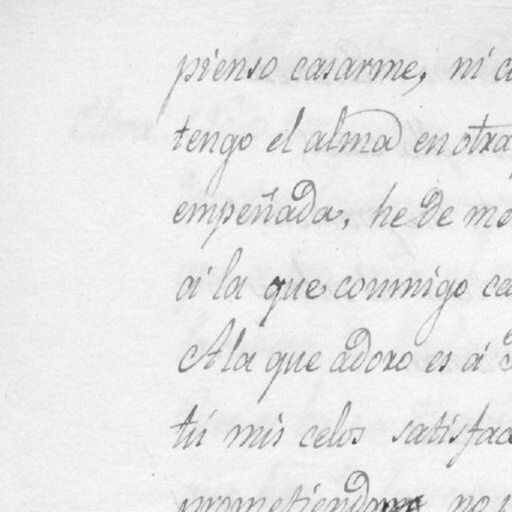 pienso casarme, ni
tengo el alma en otra
empeñada, he de
á la que conmigo
A la que adoro es á
tú mis celos
prometiendome no